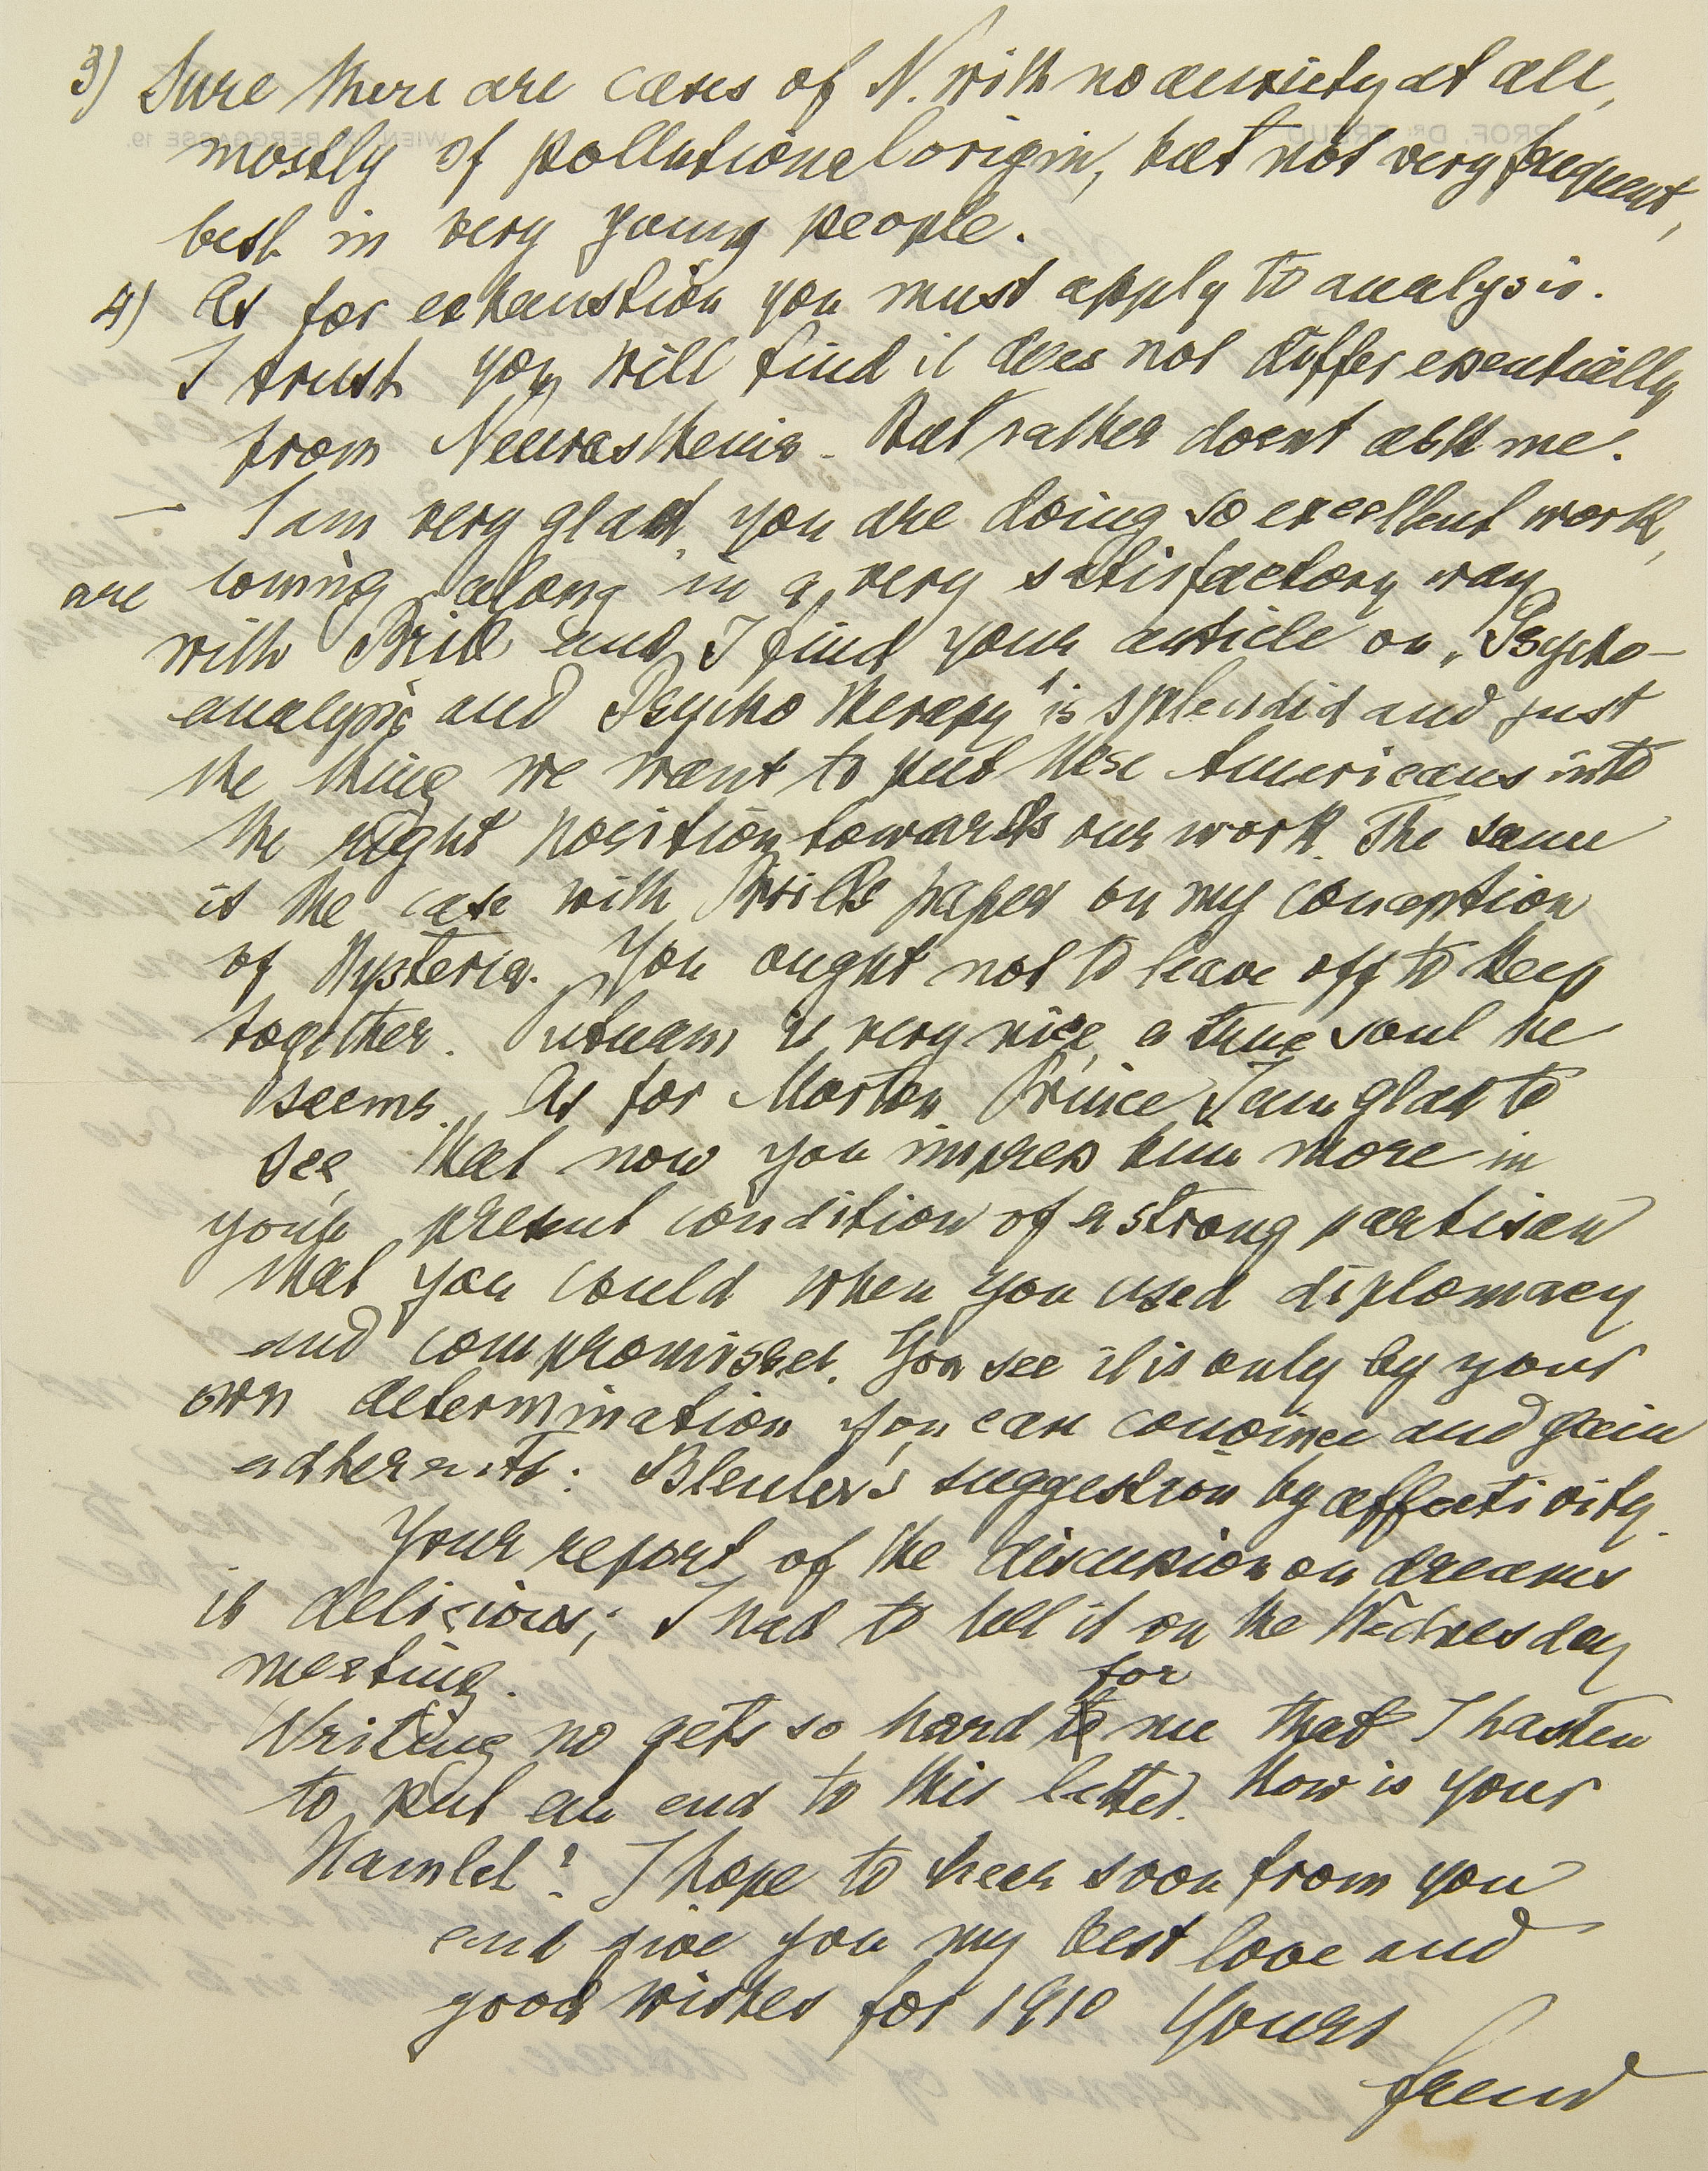 3) Sure there are cases of N. with no anxiety at all,
mostly of pollutional origin, but not very frequent,
best in very young people.
4) As for exhaustion you must apply to analysis.
I trust you will find it does not differ essentially
from Neurasthenia. But rather doent ask me.
— I am very glad you are doing so excellent work,
are coming along in a very satisfactory way
with Brill and I find your article on „Psycho-
analysis and Psychotherapy" is splendid and just
the thing we want to put these Americans into
the right position towards our work. The same
is the case with Brills paper on my conception
of Hysteria. You ought not to leave off to keep
together. Putnam is very nice, a true soul he
seems. As for Morton Prince I am glad to
see, that now you impress him more in
your present condition of a strong partisan
that you could when you used diplomacy
and compromisses. You see it is only by your
own determination you can convince and gain
adherents. Bleuler's suggestion by affectivity.
Your report of the discussion on dreams
is delicious; I had to tell it on the Wednesday
meeting.
for
Writing no gets so hard to me that I hasten
to put an end to this letter. How is your
Hamlet? I hope to hear soon from you
and give you my best love and
good wishes for 1910 Yours
Freud
PROF. DR. FREUD WIEN, IX. BERGGASSE 19.